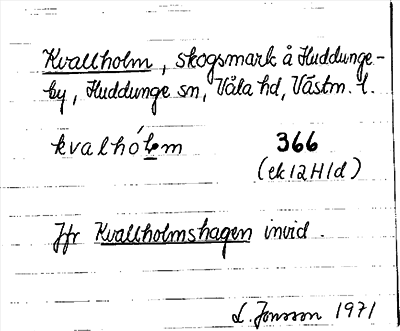 Kvallholm, skogsmark å Huddunge-
by, Huddunge sn, Våla hd, Västm. l.
kvalhó̀lm 366
(ek 12H1d)
Jfr Kvallholmshagen invid.
L. Jonsson 1971